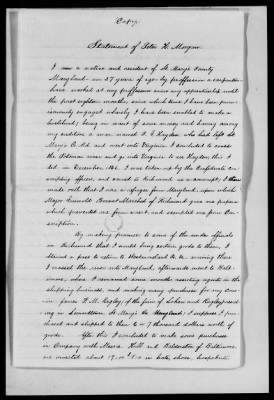 Copy.
Statement of Peter H. Morgan
I am a native and resident of St. Marys County
Maryland – am 27 years of age by profession a carpenter –
have worked at my profession since my apprenticeship until
the past eighteen months, since which time I have been pre-
cariously engaged whereby I have been enabled to make a
livelihood; being in want of some money and having among
my creditors a man named J. E. Hayden who had left St.
Marys Co. Md and went into Virginia I concluded to cross
the Potomac river and go into Virginia to see Hayden; this I
did in December, 186 I was taken up by the Confederate con-
scripting officers, and carried to Richmond as a conscript; I then
made oath that I was a refugee from Maryland, upon which
Major Griswold Provost Marshal of Richmond gave me papers
which prevented me from arrest and exempted me from Con-
scription.
By making promise to some of the under officials
in Richmond that I would bring certain goods to them, I
obtained a pass to return to Westmoreland Co. Va. arriving there
I crossed the river into Maryland, afterwards went to Balti-
more, where I remained some months meeting agents in the
shipping business, and making many purchases for my Cous-
in James H. M. of the firm of and
ing in Leonardtown St. Marys Co. Maryland; I suppose I pur-
chased and shipped to them 6 or 7 thousand dollars worth of
goods. After this I concluded to make some purchases
in Company with Messrs. Hall and of Baltimore
we invested about in hats, shoes,